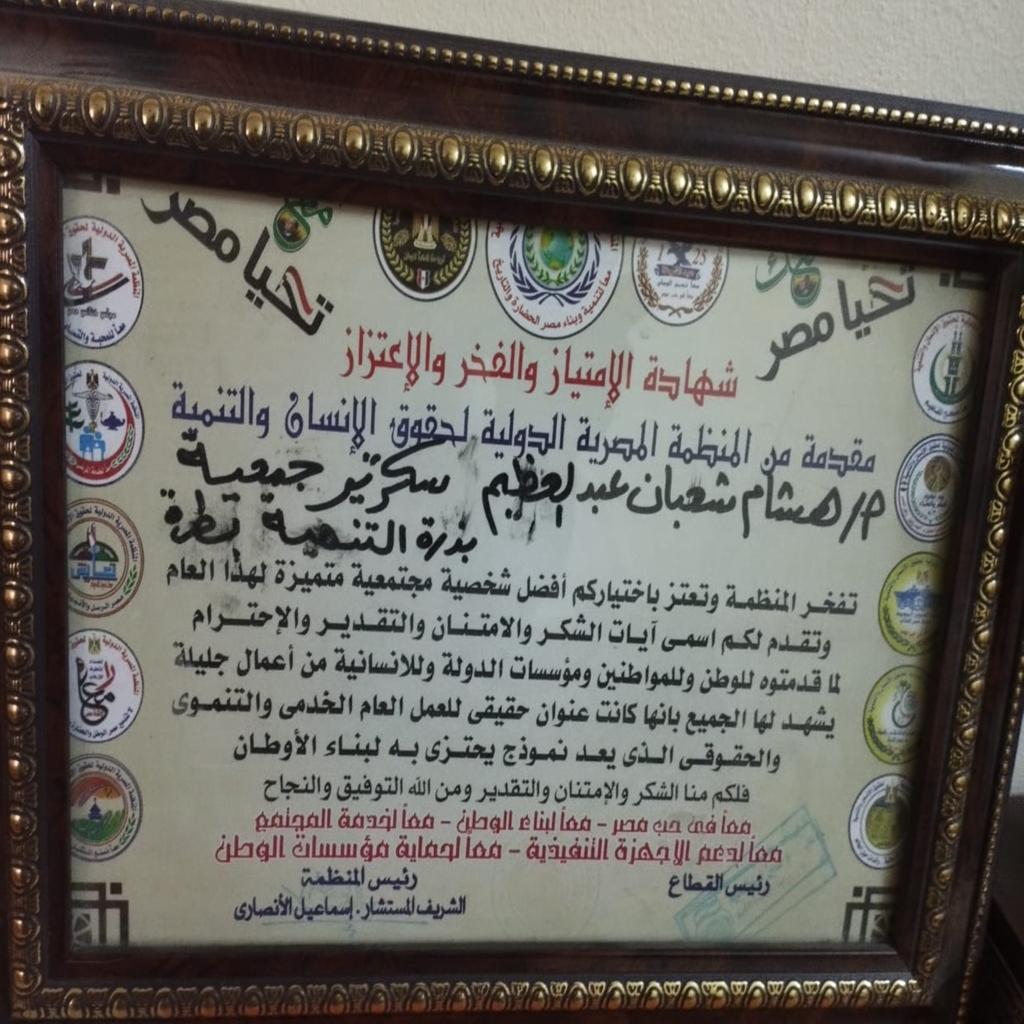 تحيا مصر
تحيا مصر
معاً لتنمية وبناء مصر الحضارة والتاريخ
شهادة الإمتياز والفخر والإعتزاز
مقدمة من المنظمة المصرية الدولية لحقوق الإنسان والتنمية
م/ هشام شعبان عبد العظيم سكرتير جمعية
بذرة التنمية
تفخر المنظمة وتعتز باختياركم أفضل شخصية مجتمعية متميزة لهذا العام
وتقدم لكم اسمى آيات الشكر والامتنان والتقدير والإحترام
لما قدمتوه للوطن وللمواطنين ومؤسسات الدولة وللانسانية من أعمال جليلة
يشهد لها الجميع بانها كانت عنوان حقيقى للعمل العام الخدمى والتنموى
والحقوقى الذى يعد نموذج يحتزى به لبناء الأوطان
فلكم منا الشكر والإمتنان والتقدير ومن الله التوفيق والنجاح
معاً فى حب مصر - معاً لبناء الوطن - معاً لخدمة المجتمع
معاً لدعم الاجهزة التنفيذية - معا لحماية مؤسسات الوطن
رئيس القطاع
رئيس المنظمة
الشريف المستشار. إسماعيل الأنصارى